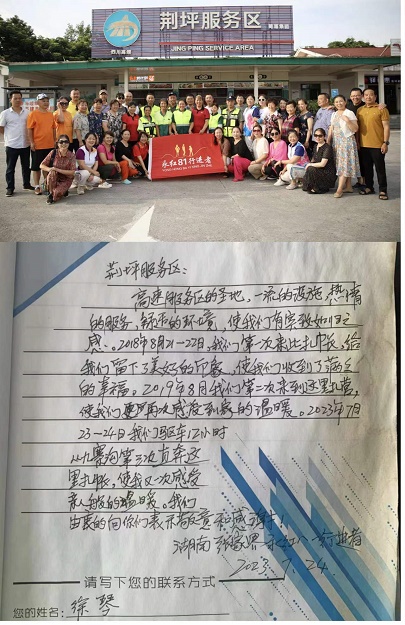 荆坪服务区
JING PING SERVICE AREA
永红81行进者
荆坪服务区:
高速服务区的圣地,一流的设施,热情
的服务,舒市的环境,使我们有宾致如归之
感。2018年8月21-22日,我们第一次来此扎帐,给
我们留下了美好的印象,使我们收到了满之
的幸福。2019年8月我们第二次来到这里扎营,
使我们更再次感受到家的温暖。2023年7月
23-24日我们驱车12小时
从九寨沟第三次直奔这
里扎帐,使我又次感受
亲人般的温暖。我们
由衷的向你们表示敬意和感谢!
湖南张家界永红八一行进者
2023.7.24.
请写下您的联系方式
您的姓名: 徐琴